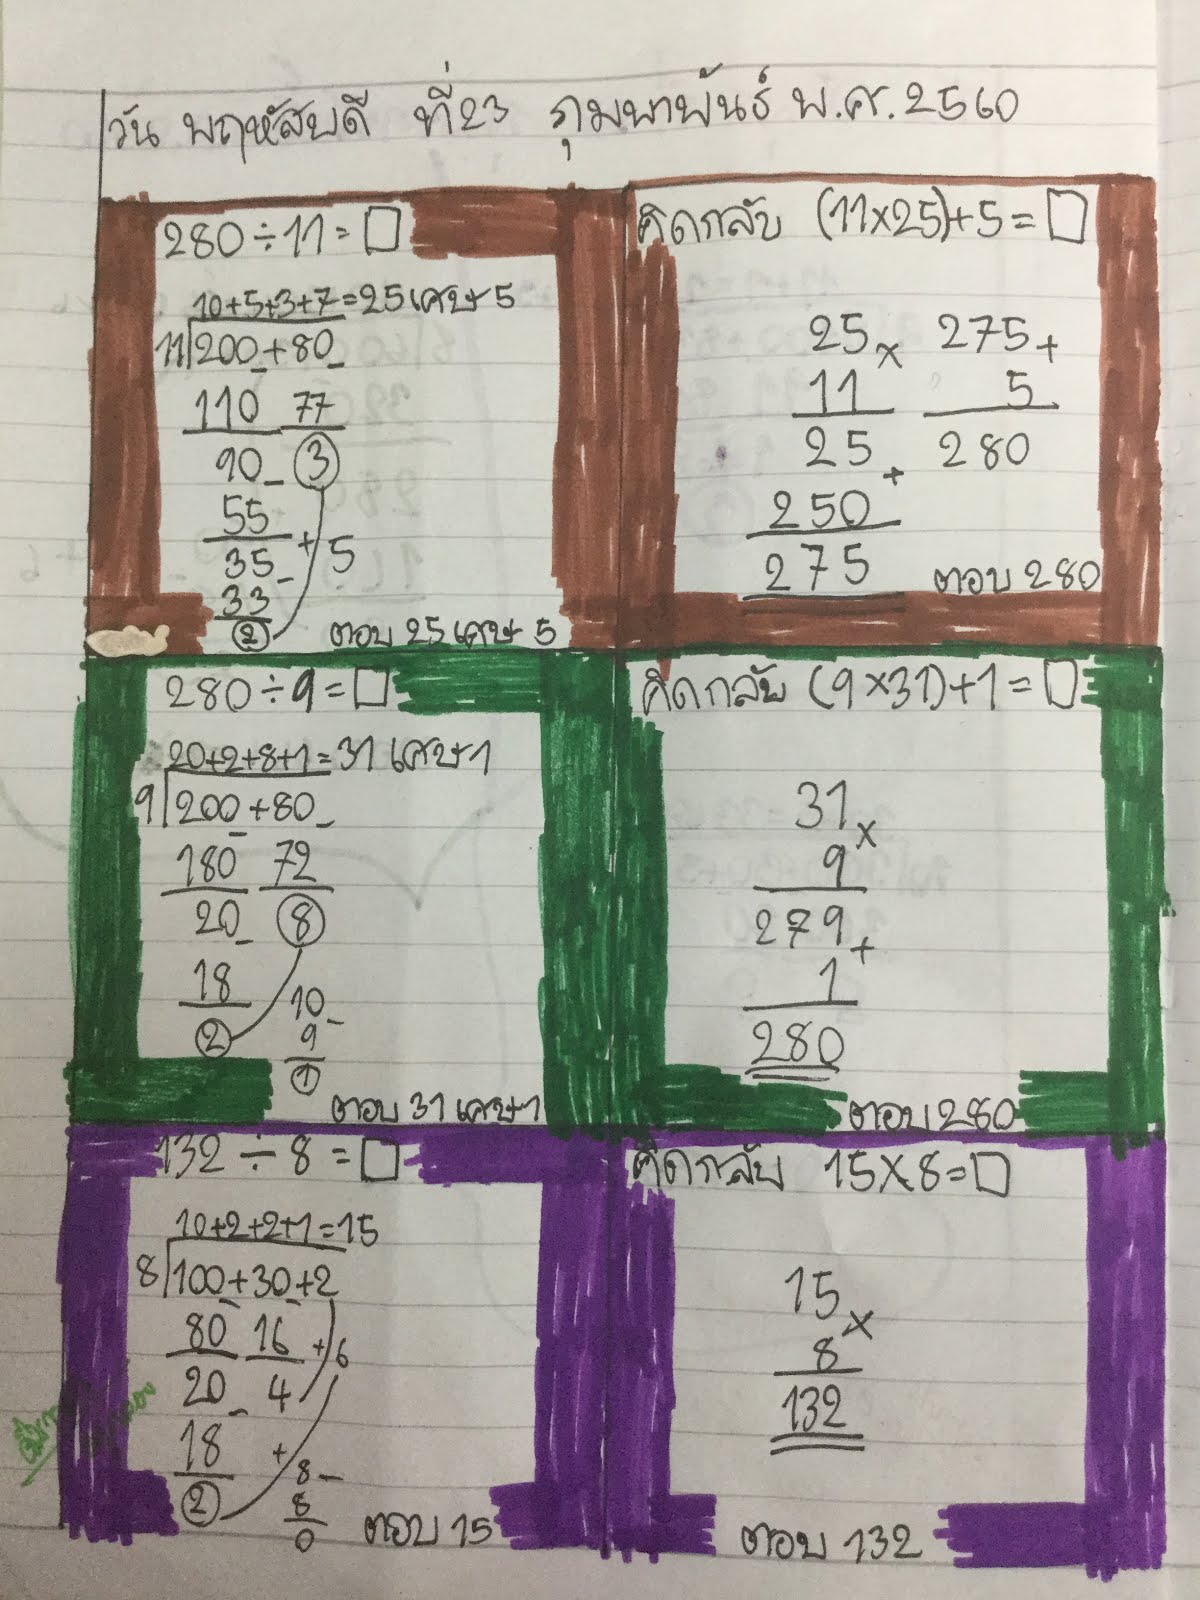 วัน พฤหัสบดี ที่23 กุมพาพันธ์ พ.ศ.2560
280÷11=□
10+5+3+7=25เศษ5
11 200+80_
110 77
90_ 3
55
35_ +5
33
2
ตอบ 25เศษ 5
คิดกลับ (11×25)+5=□
25× 275+
11 5
25+ 280
250
275
ตอบ 280
280÷9=□
20+2+8+1=31 เศษ1
9 200+80_
180 72
20_ 8
18 10_
2 9
1
ตอบ 31 เศษ1
คิดกลับ (9×31)+1=□
31×
9
279+
1
280
ตอบ 280
132÷8=□
10+2+2+1=15
8 100+30+2
80 16 +6
20_ 4
18 + 8_
2 8
0
ตอบ 15
คิดกลับ 15×8=□
15×
8
132
ตอบ 132